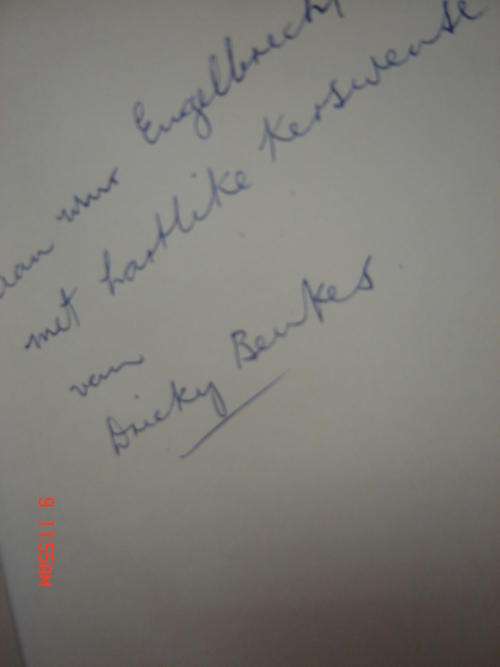 aan mnr Engelbrecht
met hartlike Kerswense
van
Dricky Beukes.
9 11:55AM